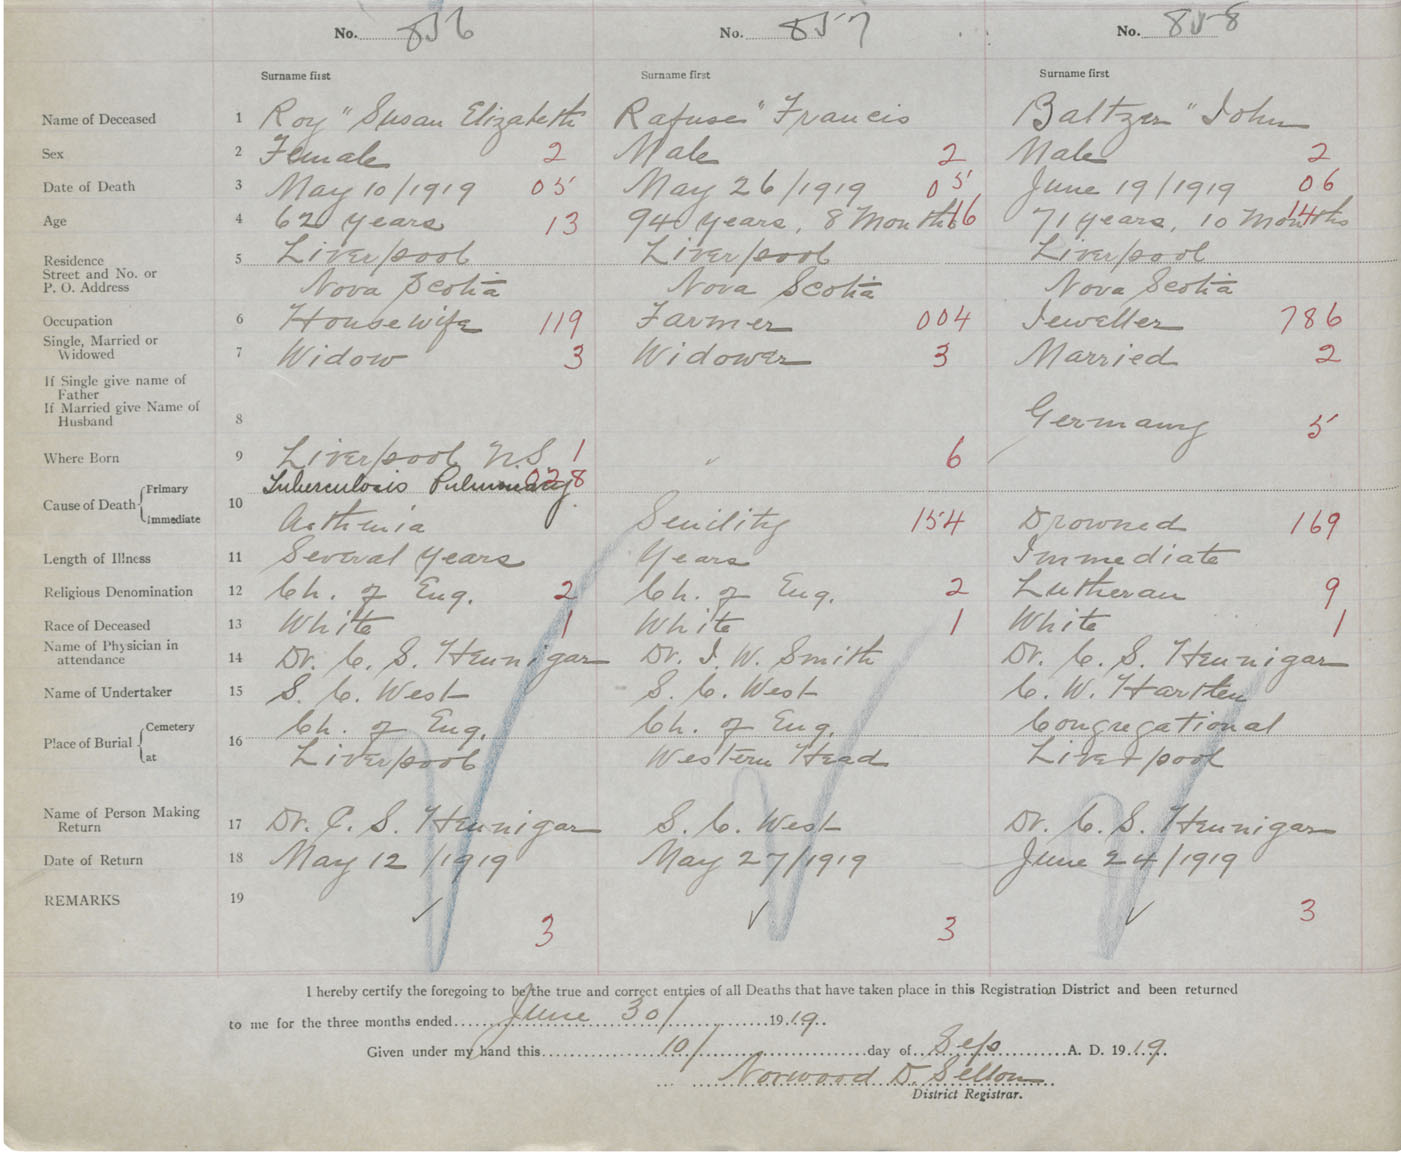 No. 856 No. 857 No. 858
Surname first Surname first Surname first
Name of Deceased 1 Roy " Susan Elizabeth Rafuse " Francis Baltzer " John
Sex 2 Female 2 Male 2 Male 2
Date of Death 3 May 10/1919 05 May 26/1919 05 June 19/1919 06
Age 4 62 years 13 94 years, 8 Months 16 71 years, 10 Months 14
Residence 5 Liverpool Liverpool Liverpool
Street and No. or
P. O. Address Nova Scotia Nova Scotia Nova Scotia
Occupation 6 Housewife 119 Farmer 004 Jeweller 786
Single, Married or
Widowed 7 Widow 3 Widower 3 Married 2
If Single give name of
Father
If Married give Name of
Husband 8 Germany 5
Where Born 9 Liverpool N.S. 1 " 6
Cause of Death Primary Tuberculosis Pulmonary. 028
Immediate 10 Asthenia Senility 154 Drowned 169
Length of Illness 11 Several years Years Immediate
Religious Denomination 12 Ch. of Eng. 2 Ch. of Eng. 2 Lutheran 9
Race of Deceased 13 White 1 White 1 White 1
Name of Physician in
attendance 14 Dr. C. S. Hennigar Dr. J. W. Smith Dr. C. S. Hennigar
Name of Undertaker 15 S. C. West S. C. West C. W. Hartlen
Place of Burial Cemetery 16 Ch. of Eng. Ch. of Eng. Congregational
at Liverpool Western Head Liverpool
Name of Person Making
Return 17 Dr. C. S. Hennigar S. C. West Dr. C. S. Hennigar
Date of Return 18 May 12/1919 May 27/1919 June 24/1919
REMARKS 19 ✓ 3 ✓ 3 ✓ 3
I hereby certify the foregoing to be the true and correct entries of all Deaths that have taken place in this Registration District and been returned
to me for the three months ended June 30/ 1919.
Given under my hand this 10/ day of Sep A. D. 1919.
Norwood D. Sellon
District Registrar.